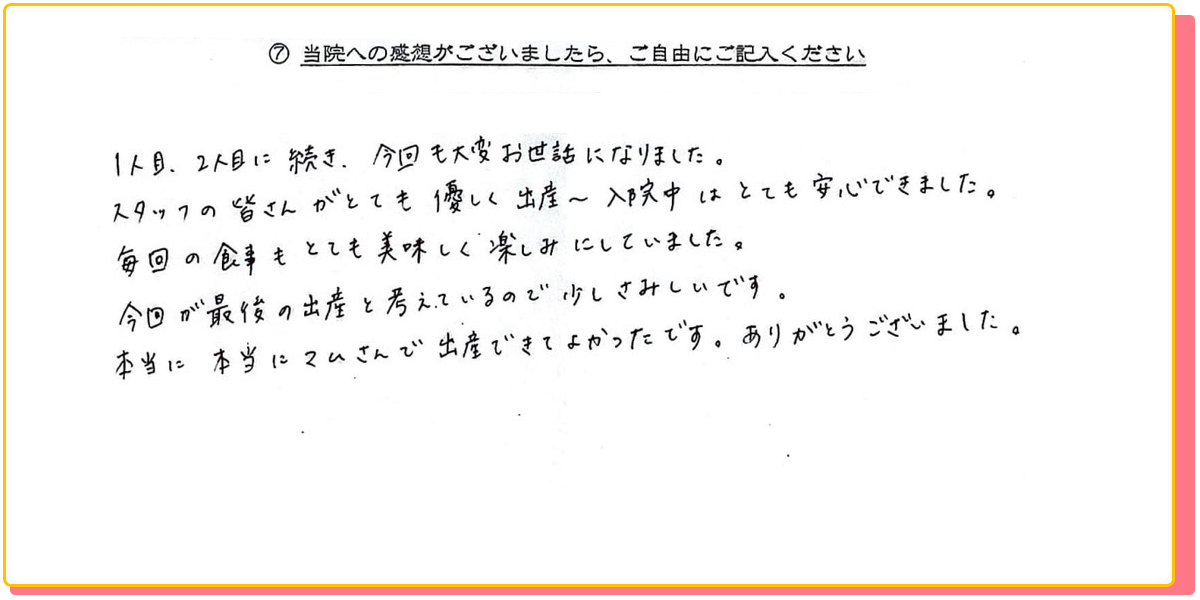 ⑦ 当院への感想がございましたら、ご自由にご記入ください
1人目、2人目に続き、今回も大変お世話になりました。
スタッフの皆さんがとても優しく出産～入院中はとても安心できました。
毎回の食事もとても美味しく楽しみにしていました。
今回が最後の出産と考えているので少しさみしいです。
本当に本当にマムさんで出産できてよかったです。ありがとうございました。